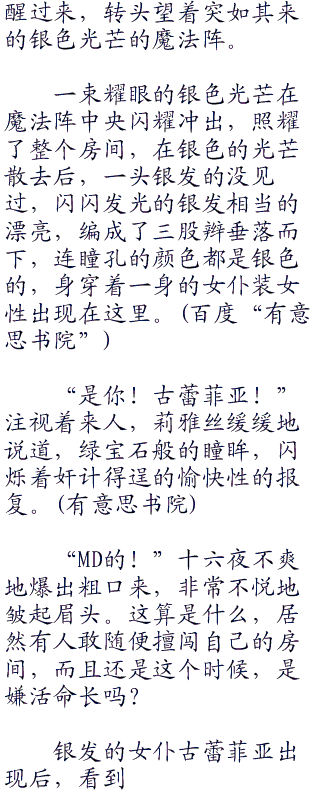 醒过来，转头望着突如其来
的银色光芒的魔法阵。
一束耀眼的银色光芒在
魔法阵中央闪耀冲出，照耀
了整个房间，在银色的光芒
散去后，一头银发的没见
过，闪闪发光的银发相当的
漂亮，编成了三股辫垂落而
下，连瞳孔的颜色都是银色
的，身穿着一身的女仆装女
性出现在这里。(百度“有意
思书院”)
“是你！古蕾菲亚！”
注视着来人，莉雅丝缓缓地
说道，绿宝石般的瞳眸，闪
烁着奸计得逞的愉快性的报
复。(有意思书院)
“MD的！”十六夜不爽
地爆出粗口来，非常不悦地
皱起眉头。这算是什么，居
然有人敢随便擅闯自己的房
间，而且还是这个时候，是
嫌活命长吗？
银发的女仆古蕾菲亚出
现后，看到